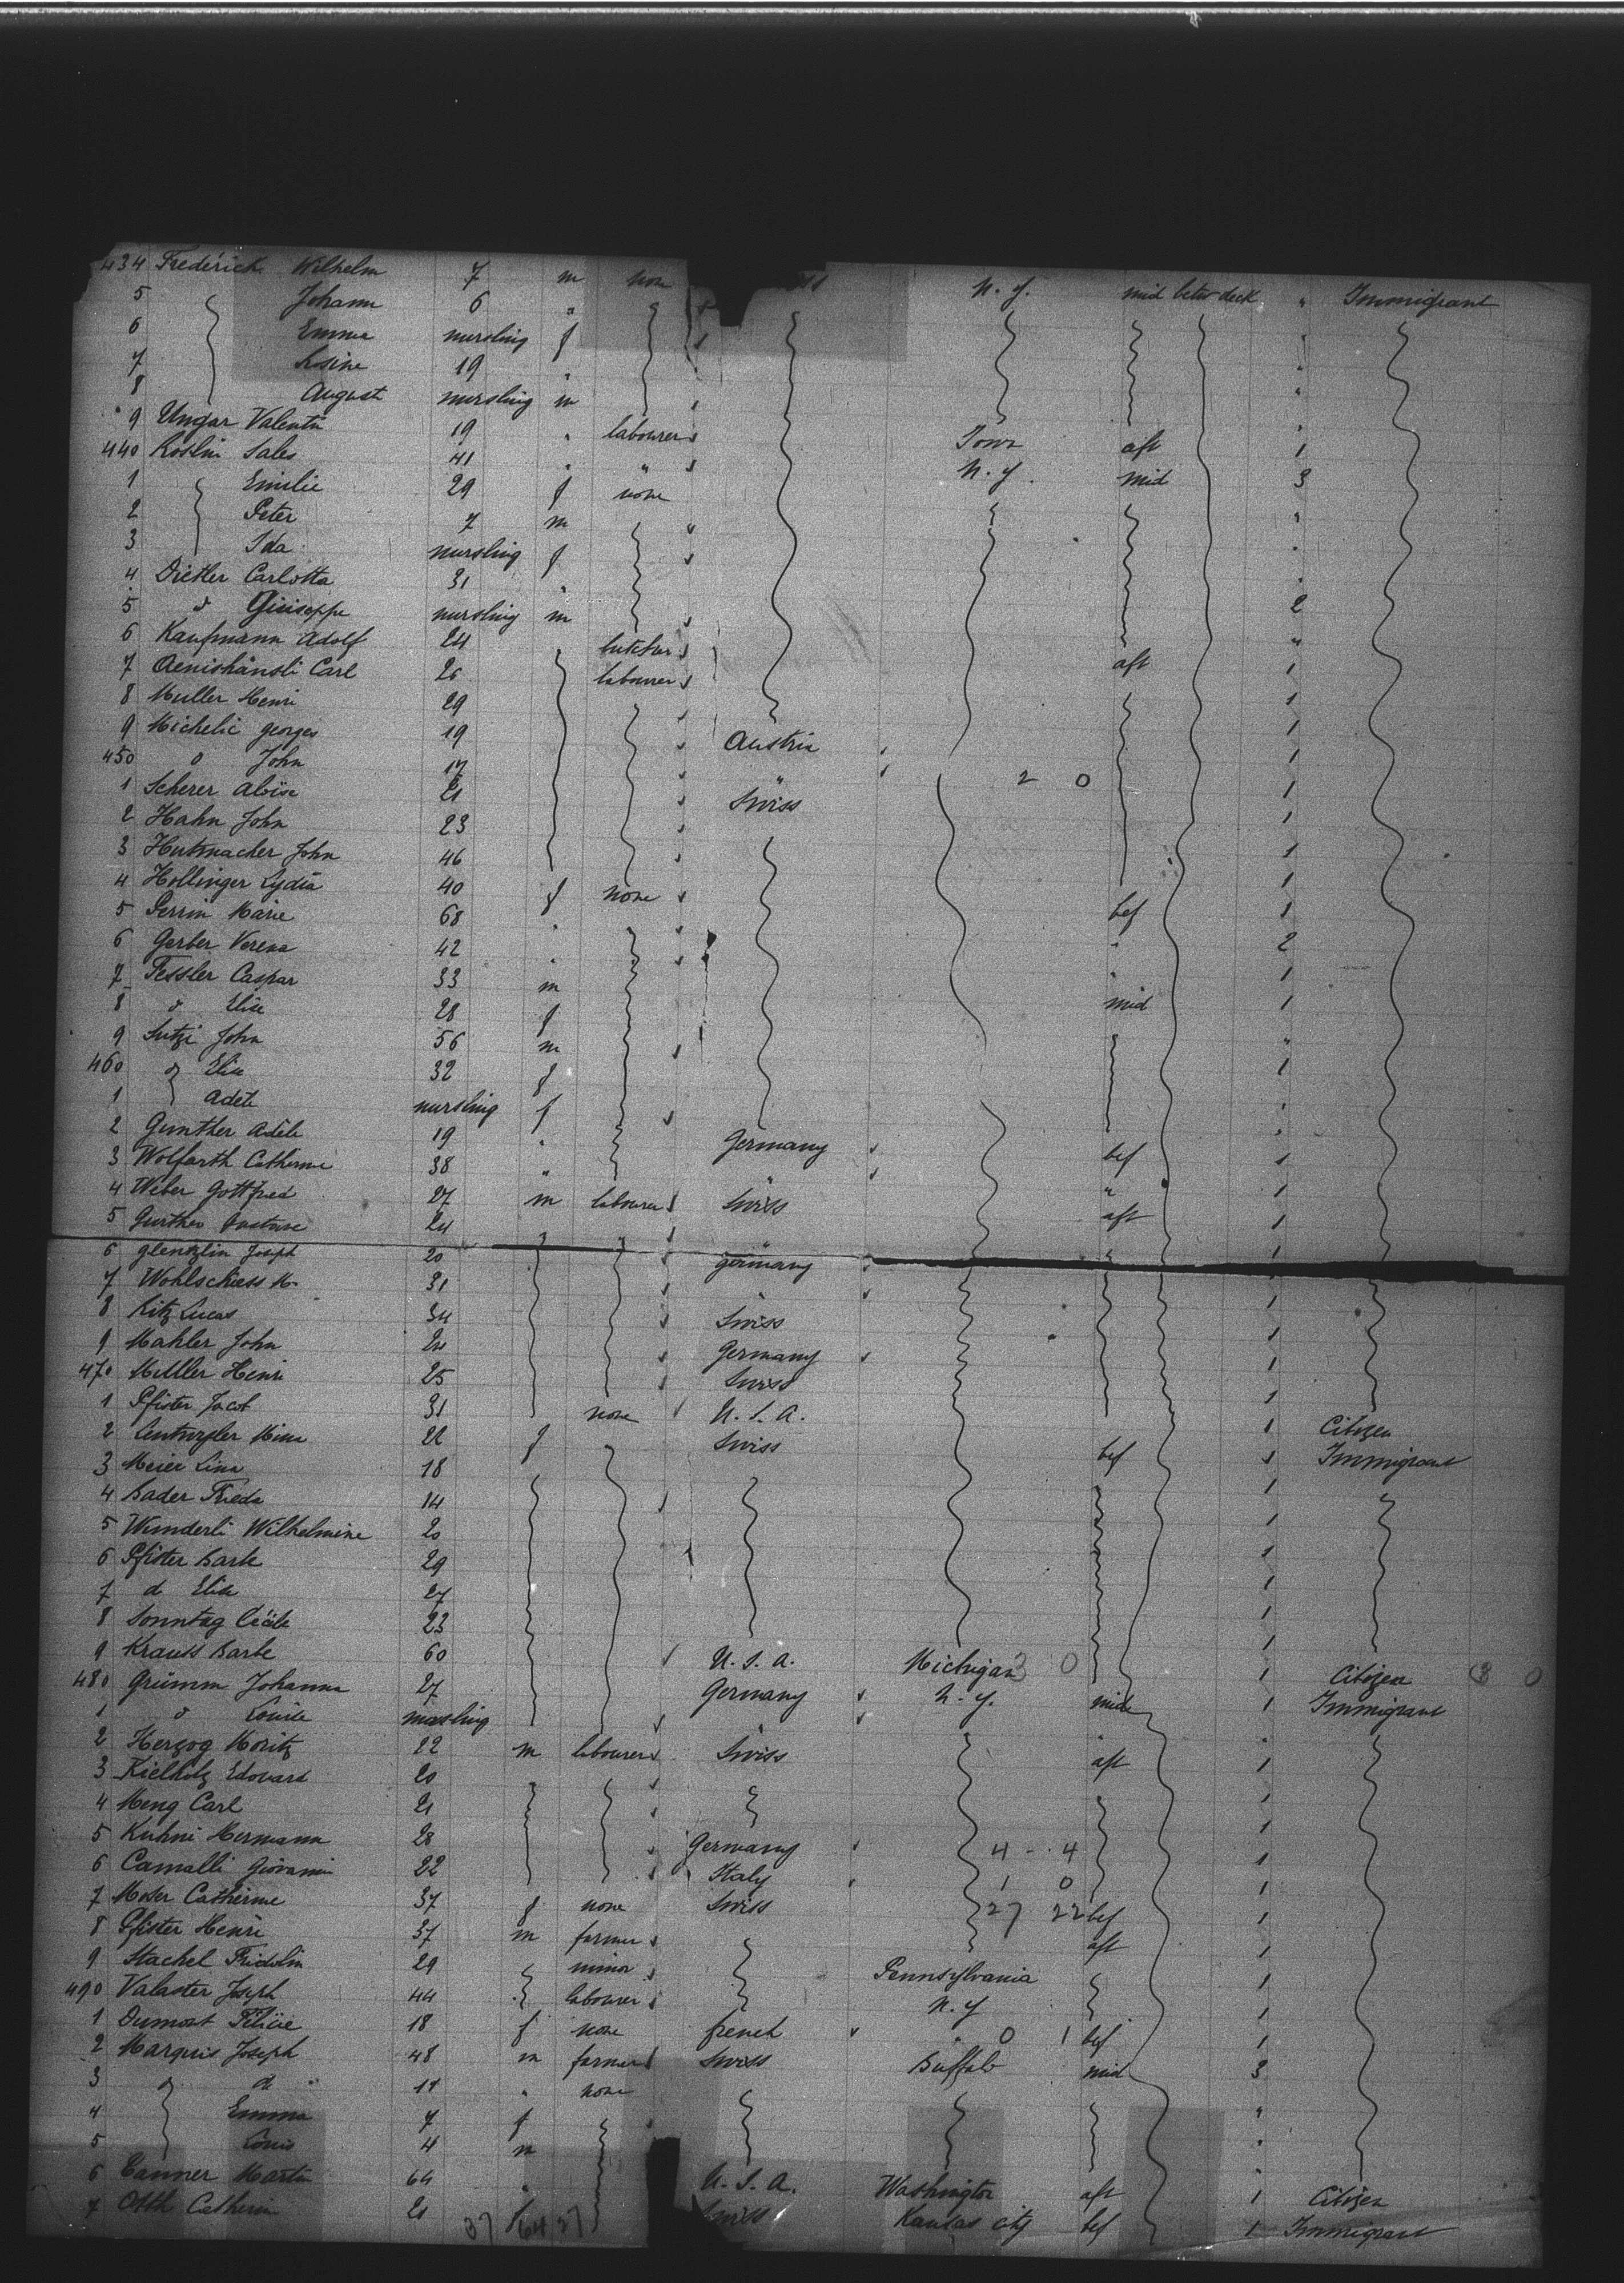 434 Frederich Wilhelm 7 m none N. Y. mid betw deck " Immigrant
5 Johann 6 "
6 Emma nursling f
7 Rosine 19 "
8 August nursling m
9 Ungar Valentin 19 " labourer Iowa aft 1
440 Röslin Sales 41 " " N. Y. mid 3
1 Emilie 29 f none "
2 Peter 7 m "
3 Ida nursling f "
4 Dietler Carlotta 31 " 2
5 d Giuseppe nursling m "
6 Kaufmann Adolf 24 butcher aft 1
7 Aenishänsli Carl 26 labourer 1
8 Muller Henri 29 1
9 Michelic Georges 19 Austria 1
450 d John 17 " 2 0 1
1 Scherer Aloïse 21 Swiss 1
2 Hahn John 23 1
3 Hutmacher John 46 1
4 Hollinger Lydia 40 f none bef 1
5 Perrin Marie 68 " " 2
6 Gerber Verena 42 " " 1
7 Fessler Caspar 33 m mid 1
8 d Elise 28 f "
9 Sutzi John 56 m 1
460 d Elise 32 f "
1 Adele nursling f "
2 Gunther Adèle 19 " Germany bef 1
3 Wolfarth Catherine 38 " " " 1
4 Weber Gottfried 27 m labourer Swiss aft 1
5 Gunther Gustave 24 " 1
6 Glentzlin Joseph 20 Germany
7 Wohlschiess M. 31 " 1
8 Ritz Lucas 34 Swiss 1
9 Mahler John 24 Germany 1
470 Muller Henri 25 Swiss 1
1 Pfister Jacob 31 none U. S. A. 1 Citizen
2 22 f Swiss bef 1 Immigrant
3 Meier Lina 18 1
4 Bader Frieda 14 1
5 Wunderli Wilhelmine 20 1
6 Pfister Barb. 29 1
7 d Elise 27 1
8 Sonntag Cécile 23 1
9 Krauss Barb. 60 U. S. A. Michigan 3 0 1 Citizen 3 0
480 Grümm Johanna 27 Germany N. Y. mid 1 Immigrant
1 d Louise nursling " "
2 Herzog Moritz 22 m labourer Swiss aft 1
3 Kielholz Edouard 20 1
4 Meng Carl 21 1
5 Kuhni Hermann 28 Germany 4 - 4 1
6 Camalli Giovanni 22 Italy 1 0 1
7 Moser Catherine 37 f none Swiss 27 22 bef 1
8 Pfister Henri 37 m farmer aft 1
9 Stachel Fridolin 29 minor Pennsylvania 1
490 Valaster Joseph 44 labourer N. Y 1
1 Dumont Félicie 18 f none french " 0 1 bef 1
2 Marquis Joseph 48 m farmer Swiss Buffalo mid 3
3 d d 11 " none "
4 Emma 7 f "
5 Louis 4 m "
6 Tanner Martin 64 " U. S. A. Washington aft 1 Citizen
7 Otth Catherin 21 f Swiss Kansas city bef 1 Immigrant
37 64 27